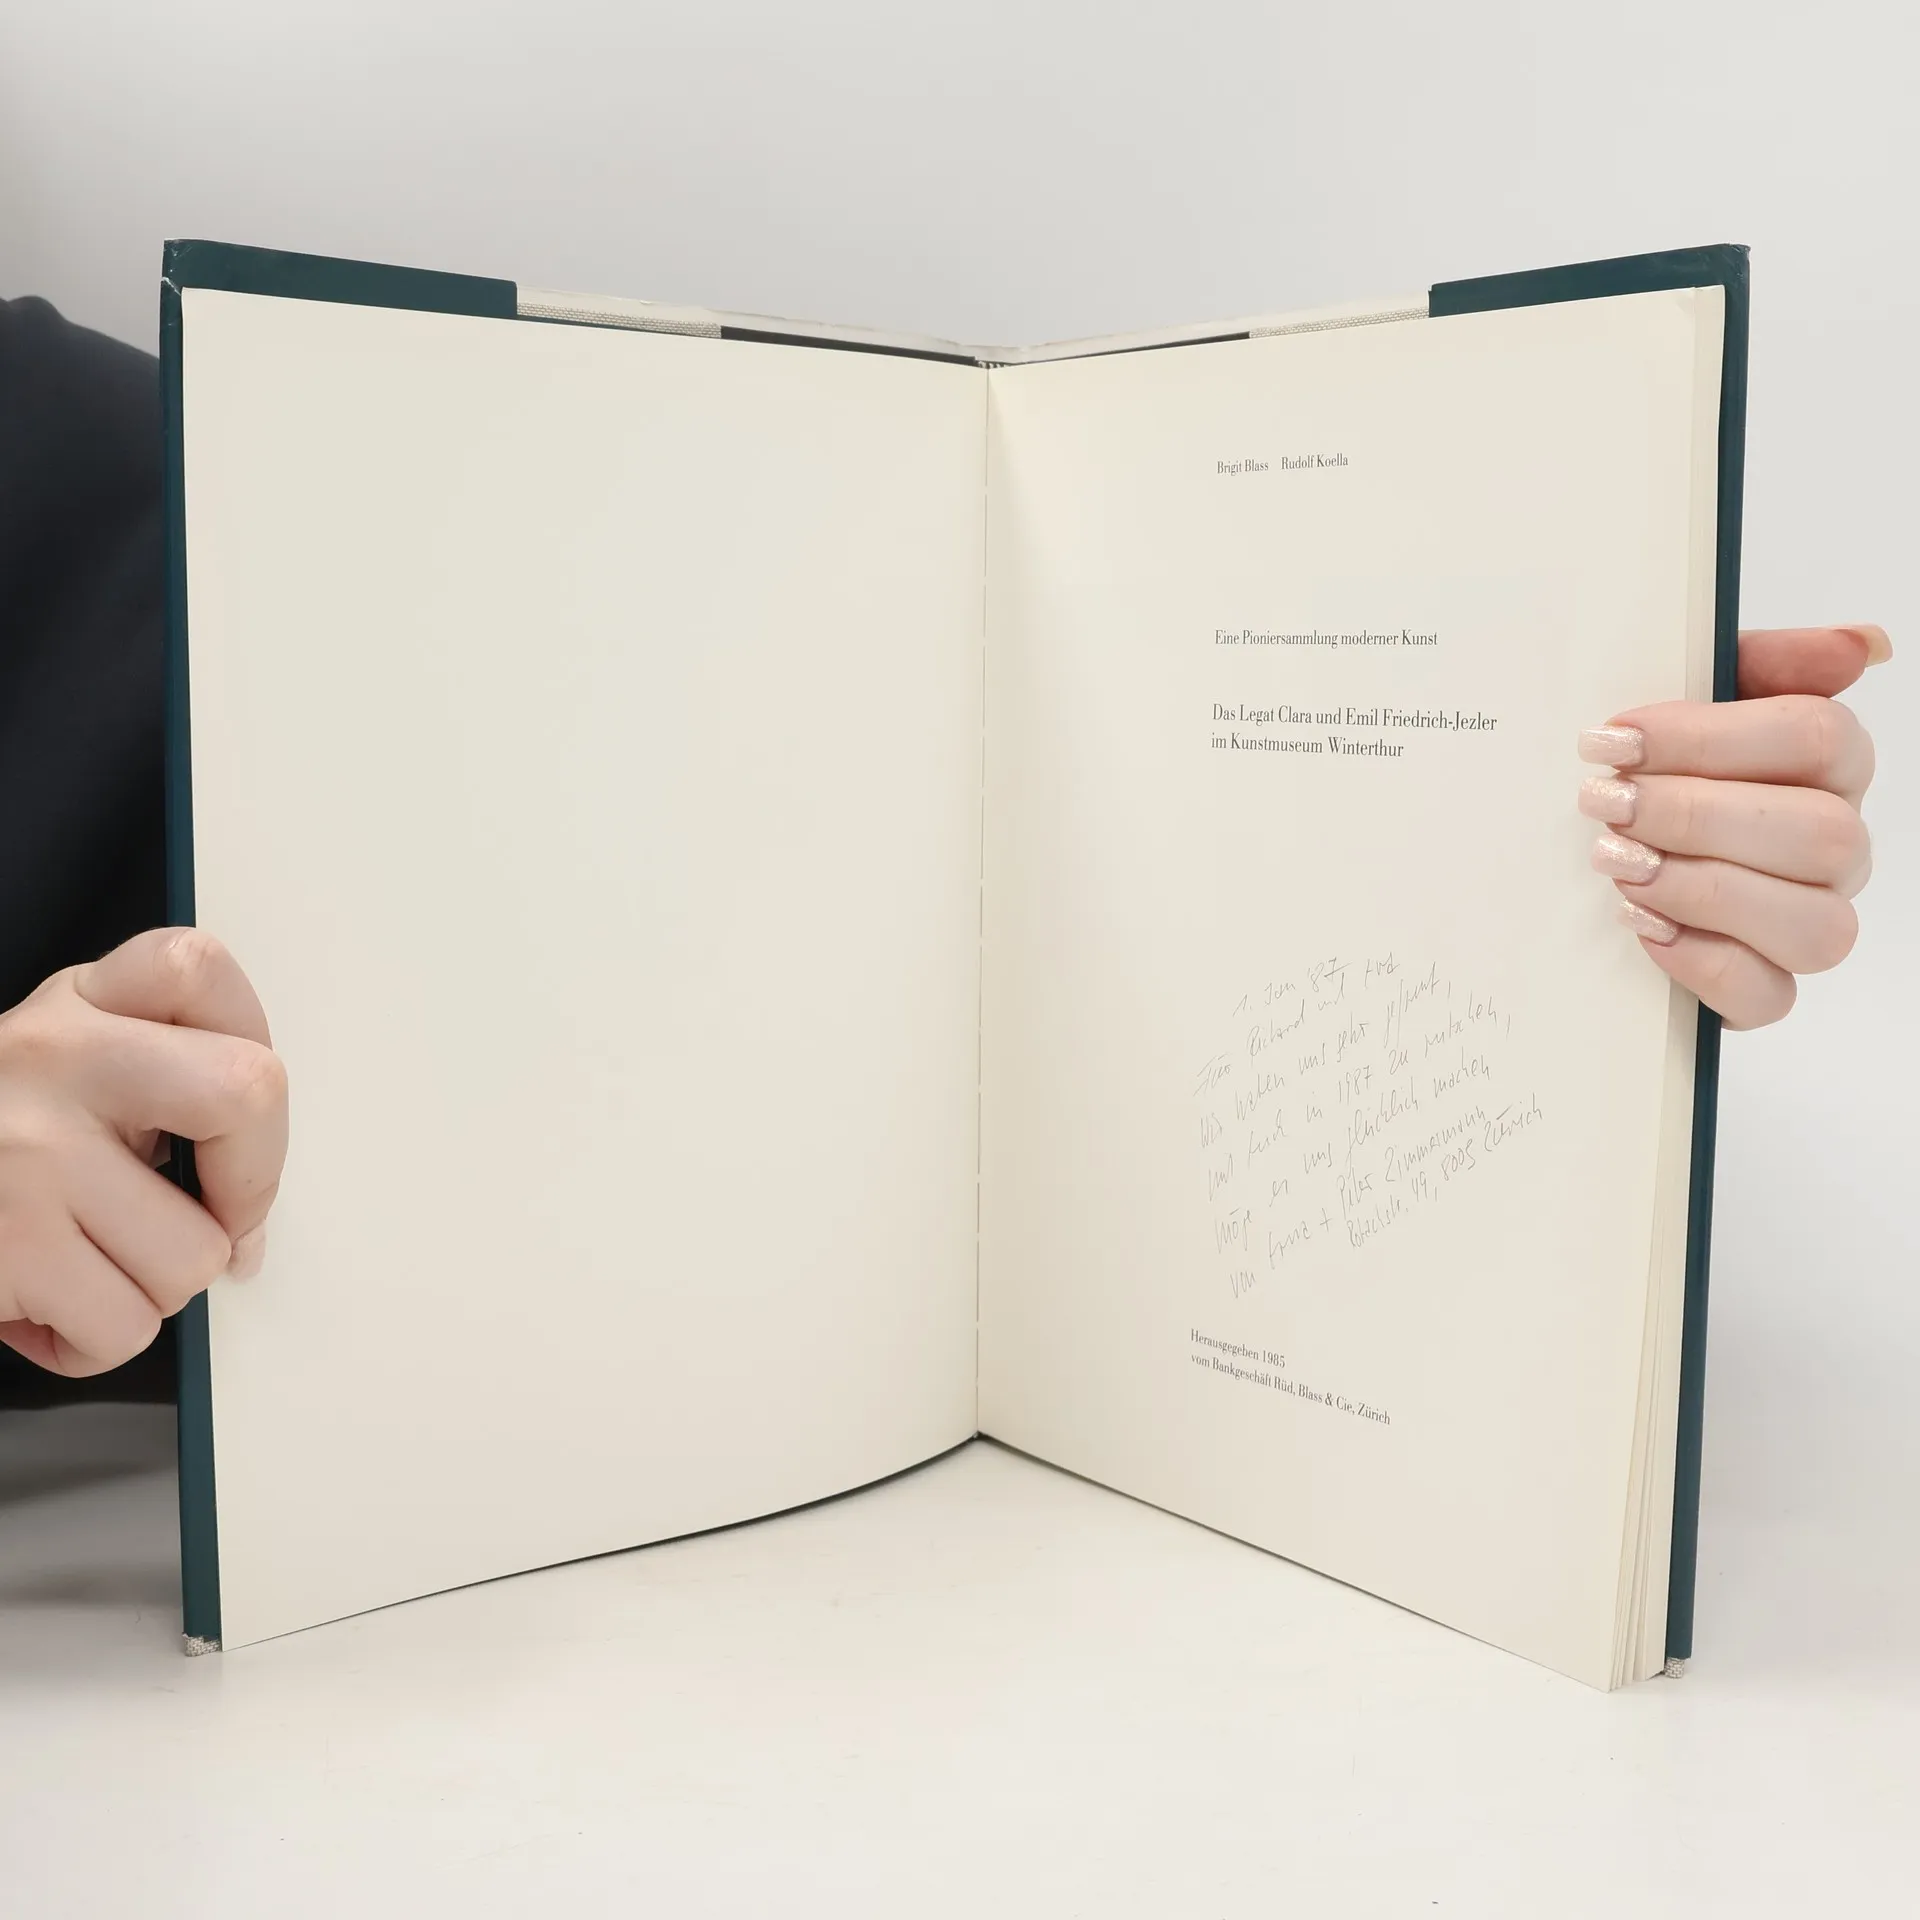 Brigit Blass Rudolf Koella
Eine Pioniersammlung moderner Kunst
Das Legat Clara und Emil Friedrich-Jezler
im Kunstmuseum Winterthur
1. Jan '87
Für Richard und
Wir haben uns sehr gefreut,
mit Euch in 1987 zu rutschen,
Möge er uns glücklich machen
von + Zimmermann
49, 8005 Zürich
Herausgegeben 1985
vom Bankgeschäft Rüd, Blass & Cie, Zürich